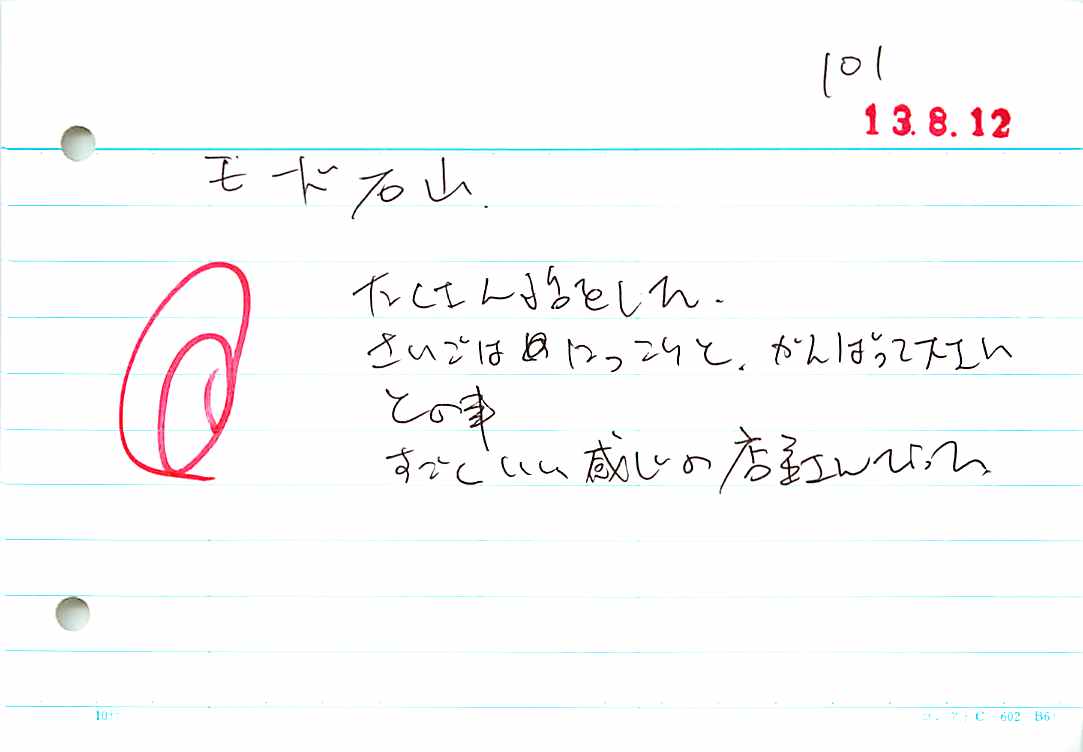 101
13.8.12
モード石山.
たくさん話をした.
さいごは にっこりと、がんばって下さい
との事
すごくいい感じの店主さんだった、
C-602 B6